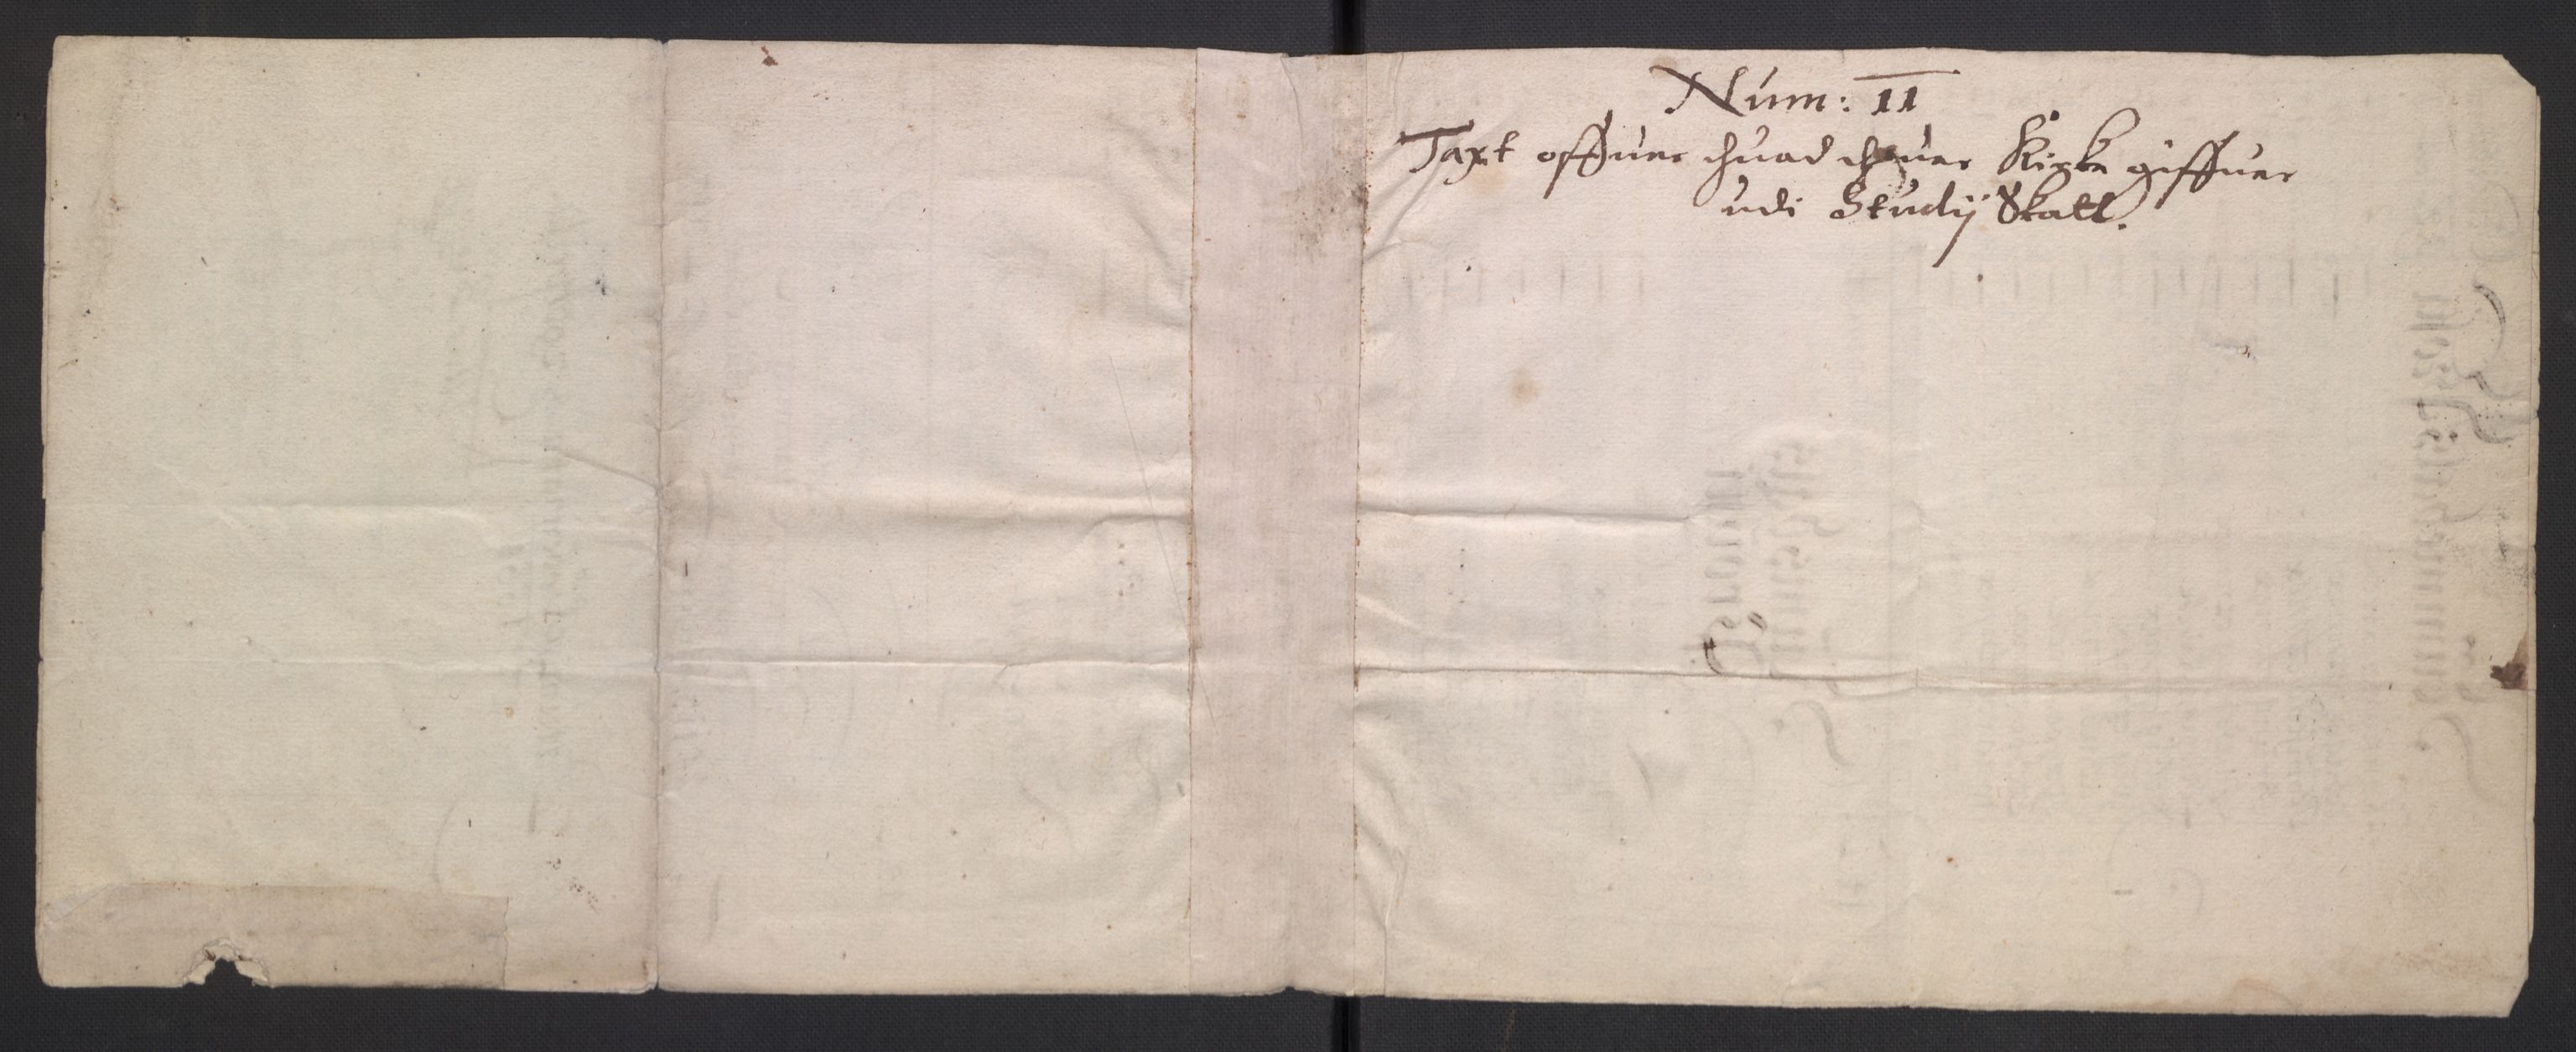 Num: 11
Taxt offuer huad huer Kircke giffuer
udi Studij Skatt.